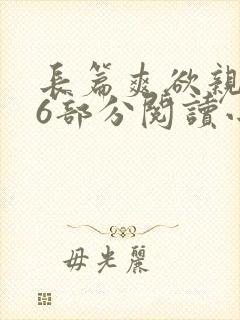 長篇爽欲親
6部分閱讀小
毋光麗